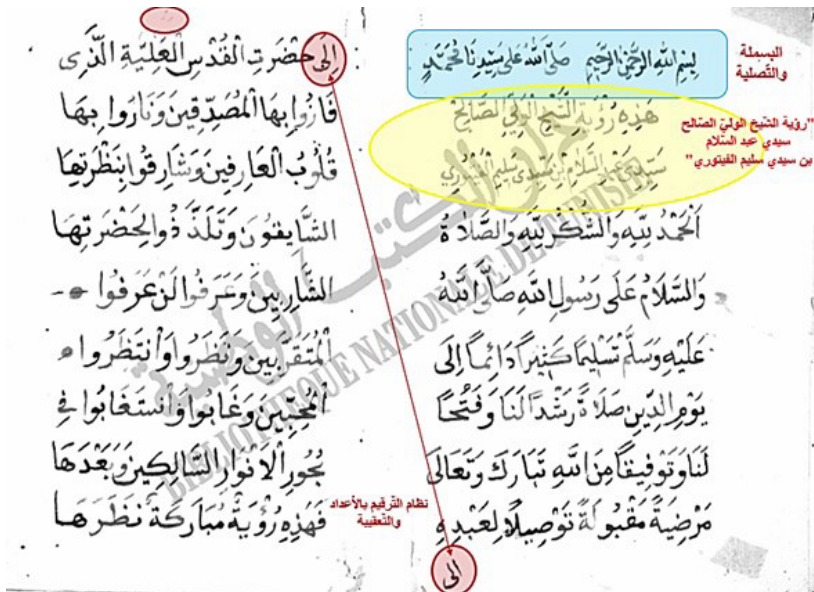 بِسْمِ اللهِ الرَّحْمٰنِ الرَّحِيمِ صَلَّى اللهُ عَلَى سَيِّدِنَا مُحَمَّدٍ
البسملة
والتّصلية
هَذِهِ رُؤْيَةُ الشَّيْخِ الْوَلِيِّ الصَّالِحِ
سَيِّدِي عَبْدِ السَّلَامِ ابْنِ سَيِّدِي سَلِيمِ الْفَيْتُورِي
"رؤية الشّيخ الوليّ الصّالح
سيدي عبد السّلام
بن سيدي سليم الفيتوري"
اَلْحَمْدُ لِلَّهِ وَالشُّكْرُ لِلَّهِ وَالصَّلَاةُ
وَالسَّلَامُ عَلَى رَسُولِ اللَّهِ صَلَّى اللَّهُ
عَلَيْهِ وَسَلَّمَ تَسْلِيمًا كَثِيرًا دَائِمًا إِلَى
يَوْمِ الدِّينِ صَلَاةً رَشَدًا لَنَا وَفَتْحًا
لَنَا وَتَوْفِيقًا مِنَ اللَّهِ تَبَارَكَ وَتَعَالَى
مَرْضِيَّةً مَقْبُولَةً تَوْصِيلًا لِعَبْدِهِ
إلى
إلى حَضْرَتِ الْقُدْسِ الْعَلِيَّةِ الَّذِي
فَازُوا بِهَا الْمُصَدِّقِينَ وَنَارُوا بِهَا
قُلُوبُ الْعَارِفِينَ وَشَارِقُوا بِنَظْرَتِهَا
الشَّايِقُونَ وَتَلَذَّذُوا لِحَضْرَتِهَا
الشَّارِبِينَ وَعَرَفُوا لَنْ عَرَفُوا
الْمُتَقَرِّبِينَ وَنَظَرُوا وَانْتَظَرُوا
الْمُحِبِّينَ وَغَابُوا وَاسْتَغَابُوا فِي
بُحُورِ الْأَنْوَارِ السَّالِكِينَ وَبَعْدَهَا
فَهَذِهِ رُؤْيَةٌ مُبَارَكَةٌ نَظَرَهَا
نظام التّرقيم بالأعداد
والتّعقيبة
دار الكتب الوطنية
BIBLIOTHEQUE NATIONALE DE TUNISIE